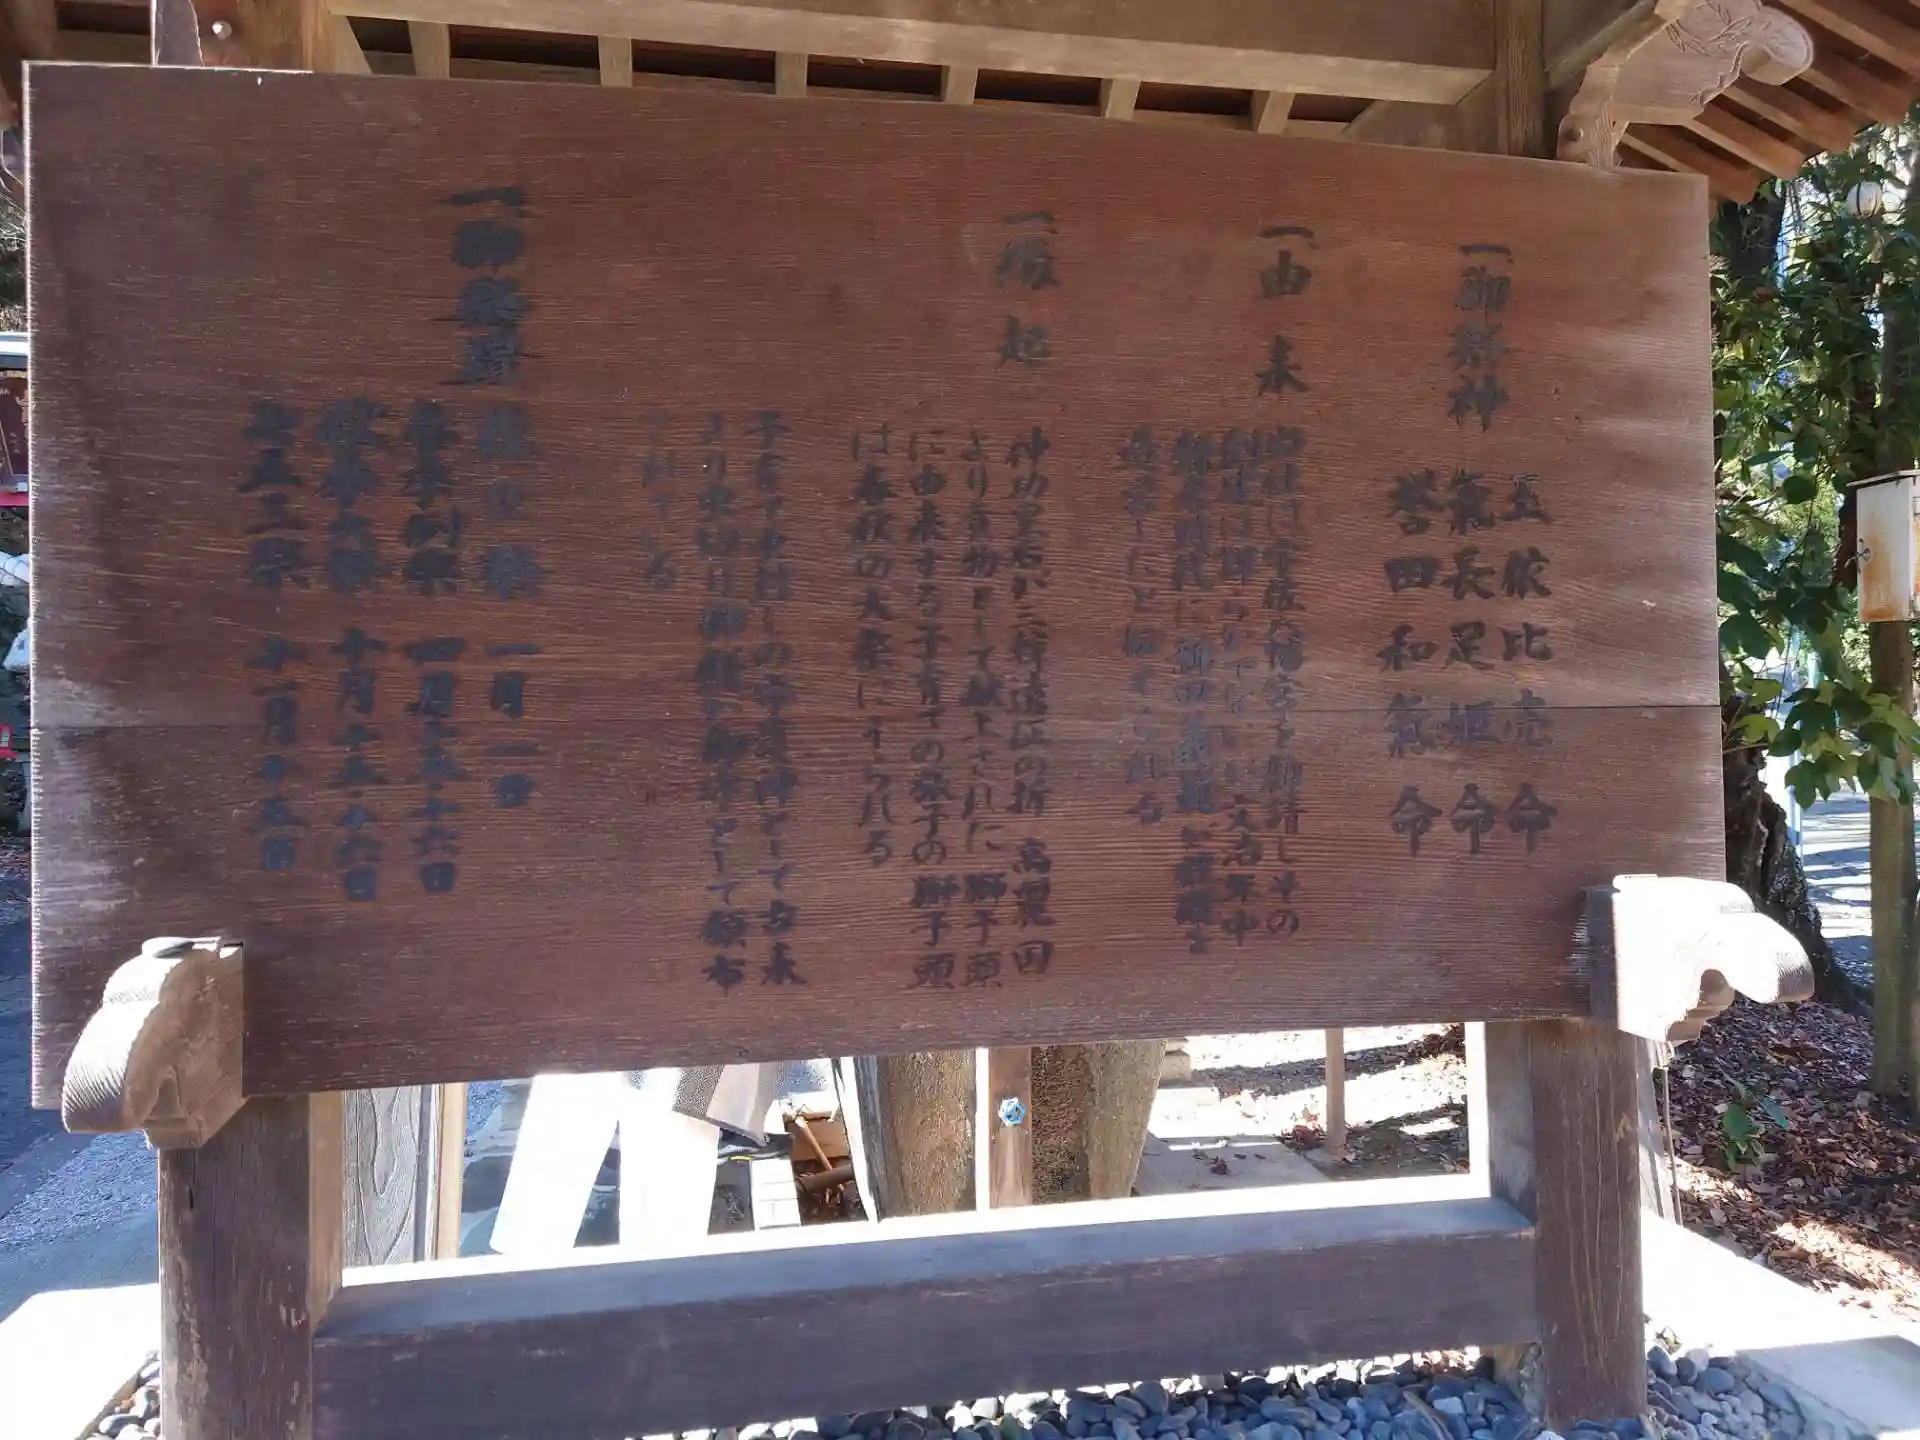 一御祭神
玉依比売命
氣長足姫命
誉田和氣命
一由来
当社は宇佐八幡宮を勧請しその
創建は詳らかでないが文治年中
鎌倉時代に
造立したと伝えられる
一縁起
神功皇后が三韓遠征の折高麗国
より貢物として献上された獅子頭
に由来する子育ての獅子の獅子頭
は春秋の大祭に
子育て
の守護神として古来
より
として頒布
されている
一御祭日
一月一日
春季例祭 四月十五 十六日
秋季大祭 十月十五 十六日
七五三祭 十一月十五日